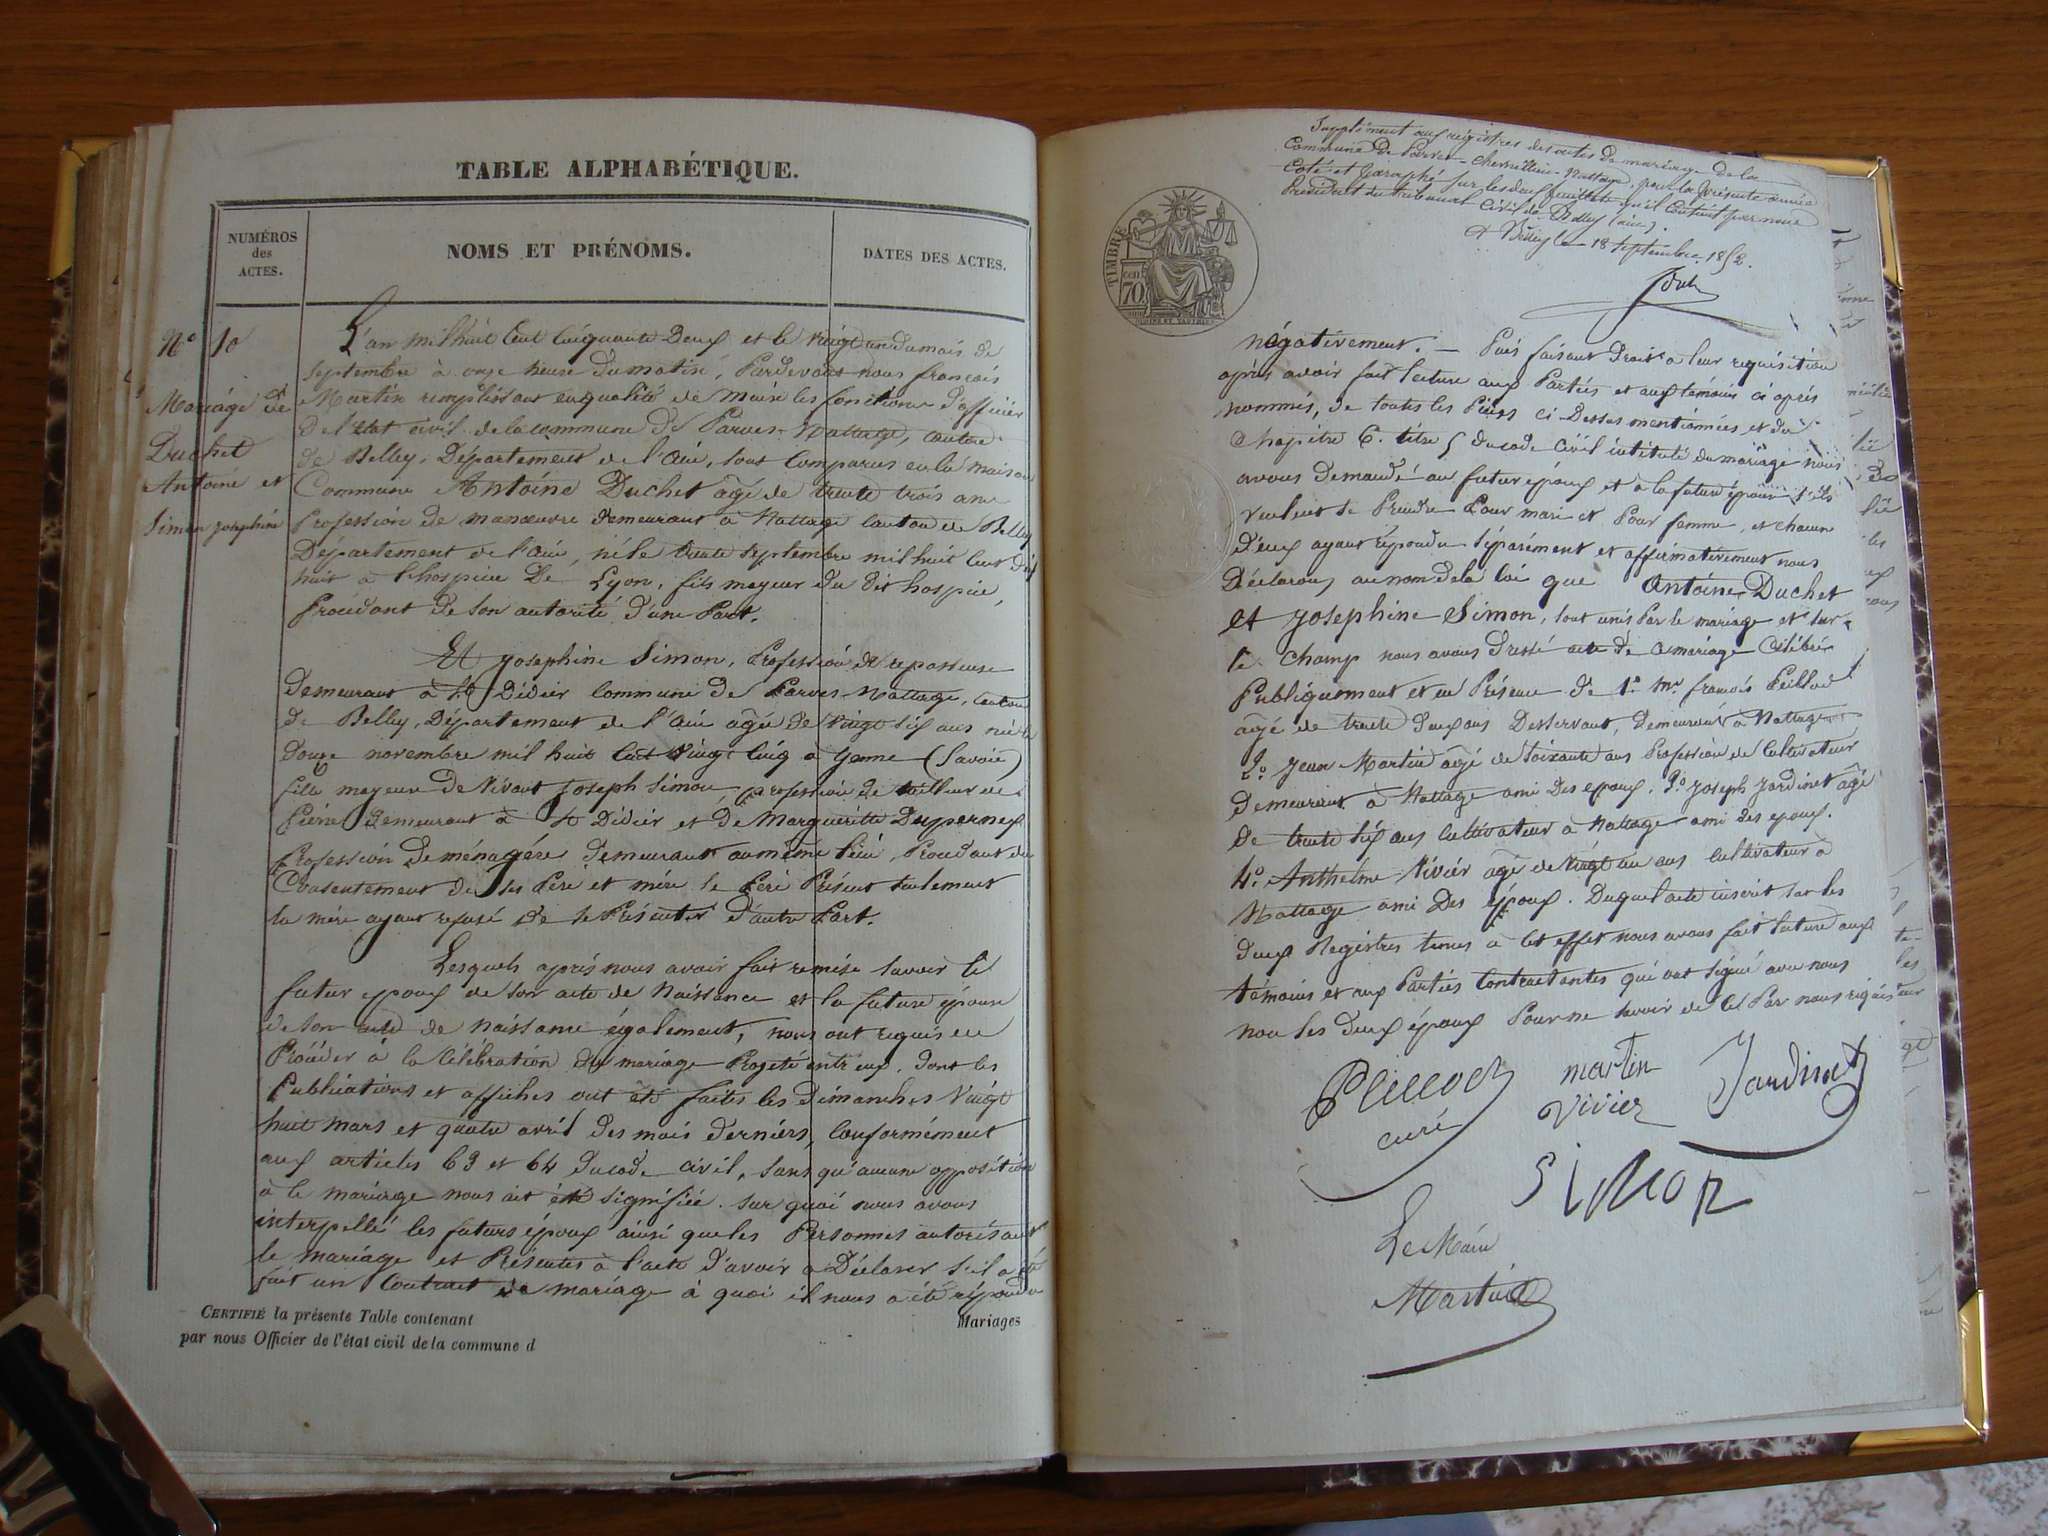 TABLE ALPHABÉTIQUE.
NUMÉROS
des
ACTES.
NOMS ET PRÉNOMS.
DATES DES ACTES.
N° 10
Mariage de
Duchet
Antoine et
Simon Josephine
L'an mil huit Cent Cinquante Deux et le vingt un du mois de
Septembre à onze heure du matin, Pardevant nous françois
Martin remplissant en qualité de Maire les fonctions d'officier
De l'état civil de la commune De Parves-Nattage, canton
de Belley, Département de l'Ain, sont Comparus en la maison
Commune Antoine Duchet âgé de trente trois ans
Profession de manœuvre demeurant à Nattage canton de Belley
Département de l'ain, né le trente septembre mil huit cent dix
huit à l'hospice De Lyon, fils mayeur du dit hospice,
Procédant De son autorité D'une Part.
Et Josephine Simon, Profession de repasseuse
demeurant à St Didier Commune de Parves-Nattage, canton
de Belley, Département de l'Ain agée de vingt six ans née le
Douze novembre mil huit Cent vingt cinq à Yenne (Savoie)
fille mayeure De Vivant Joseph Simon profession de tailleur de
Pierre demeurant à St Didier et de Marguerite Duperney
Profession De ménagére demeurant au même lieu, Procédant du
Consentement De ses Peré et mére le Peré Présent seulement
la mére ayant refusé de se Présenter D'autre Part.
Lesquels aprés nous avoir fait remise savoir le
futur epoux de son acte de Naissance et la future épouse
de son acte de naissance également, nous ont requis de
Procéder à la Célébration du mariage Projeté entr'eux, dont les
Publications et affiches ont été faites les dimanches Vingt
huit Mars et quatre avril Des mois derniérs, Conformément
aux articles 63 et 64 Du code civil, sans qu'aucune opposition
à le mariage nous ait été signifiée. Sur quoi nous avons
interpellé les futurs époux ainsi que les Personnes autorisant
le mariage et Présentes à l'acte D'avoir à Déclarer s'il a été
fait un Contract de mariage à quoi il nous a été répondu
CERTIFIÉ la présente Table contenant
Mariages
par nous Officier de l'état civil de la commune d
Supplément aux régistres des actes de mariage de la
Commune de Parves-Nattage, pour la présente année
Coté et Paraphé sur les deux feuillets qu'il contient par nous
Président du tribunal Civil de Belley (ain).
A Belley le 18 septembre 1852.
TIMBRE
70
négativement. — Puis faisant droit à leur requisition
aprés avoir fait lecture aux Parties et aux témoins ci aprés
nommés, de toutes les Piéces ci Dessus mentionnées et du
Chapitre 6. titre 5 du code civil intitulé du mariage nous
avons Demandé au futur époux et à la future épouse s'ils
veulent se Prendre Pour mari et Pour femme, et chacun
D'eux ayant répondu séparément et affirmativement nous
Déclarons, au nom de la loi que Antoine Duchet
et Josephine Simon, sont unis Par le mariage et sur
le champ nous avons Dressé acte de ce mariage Célébré
Publiquement et en Présence de 1° Mr françois Peillod
agé de trente Deux ans Desservant, Demeurant à Nattage
2° Jean Martin agé de Soixante ans Profession de Cultivateur
Demeurant à Nattage ami Des epoux. 3° Joseph Jardinet âgé
De trente six ans Cultivateur à Nattage ami des epoux.
4° Anthelme Vivier agé de Vingt un ans Cultivateur à
Nattage ami Des époux. Duquel acte inscrit sur les
Deux Régistres tenus à cet effet nous avons fait lecture aux
témoins et aux Parties Contractantes qui ont signé avec nous
non les deux époux Pour ne savoir de ce Par nous requis
Peillod
curé
Martin
Vivier
Jardinet
Simon
Le Maire
Martin